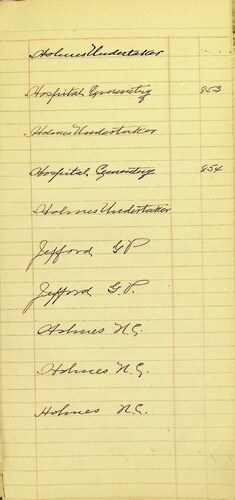 Holmes Undertaker
Hospital 853
Holmes Undertaker
Hospital 854
Holmes Undertaker
Jefford G P
Jefford G. P.
Holmes N. G.
Holmes N. G.
Holmes N. G.